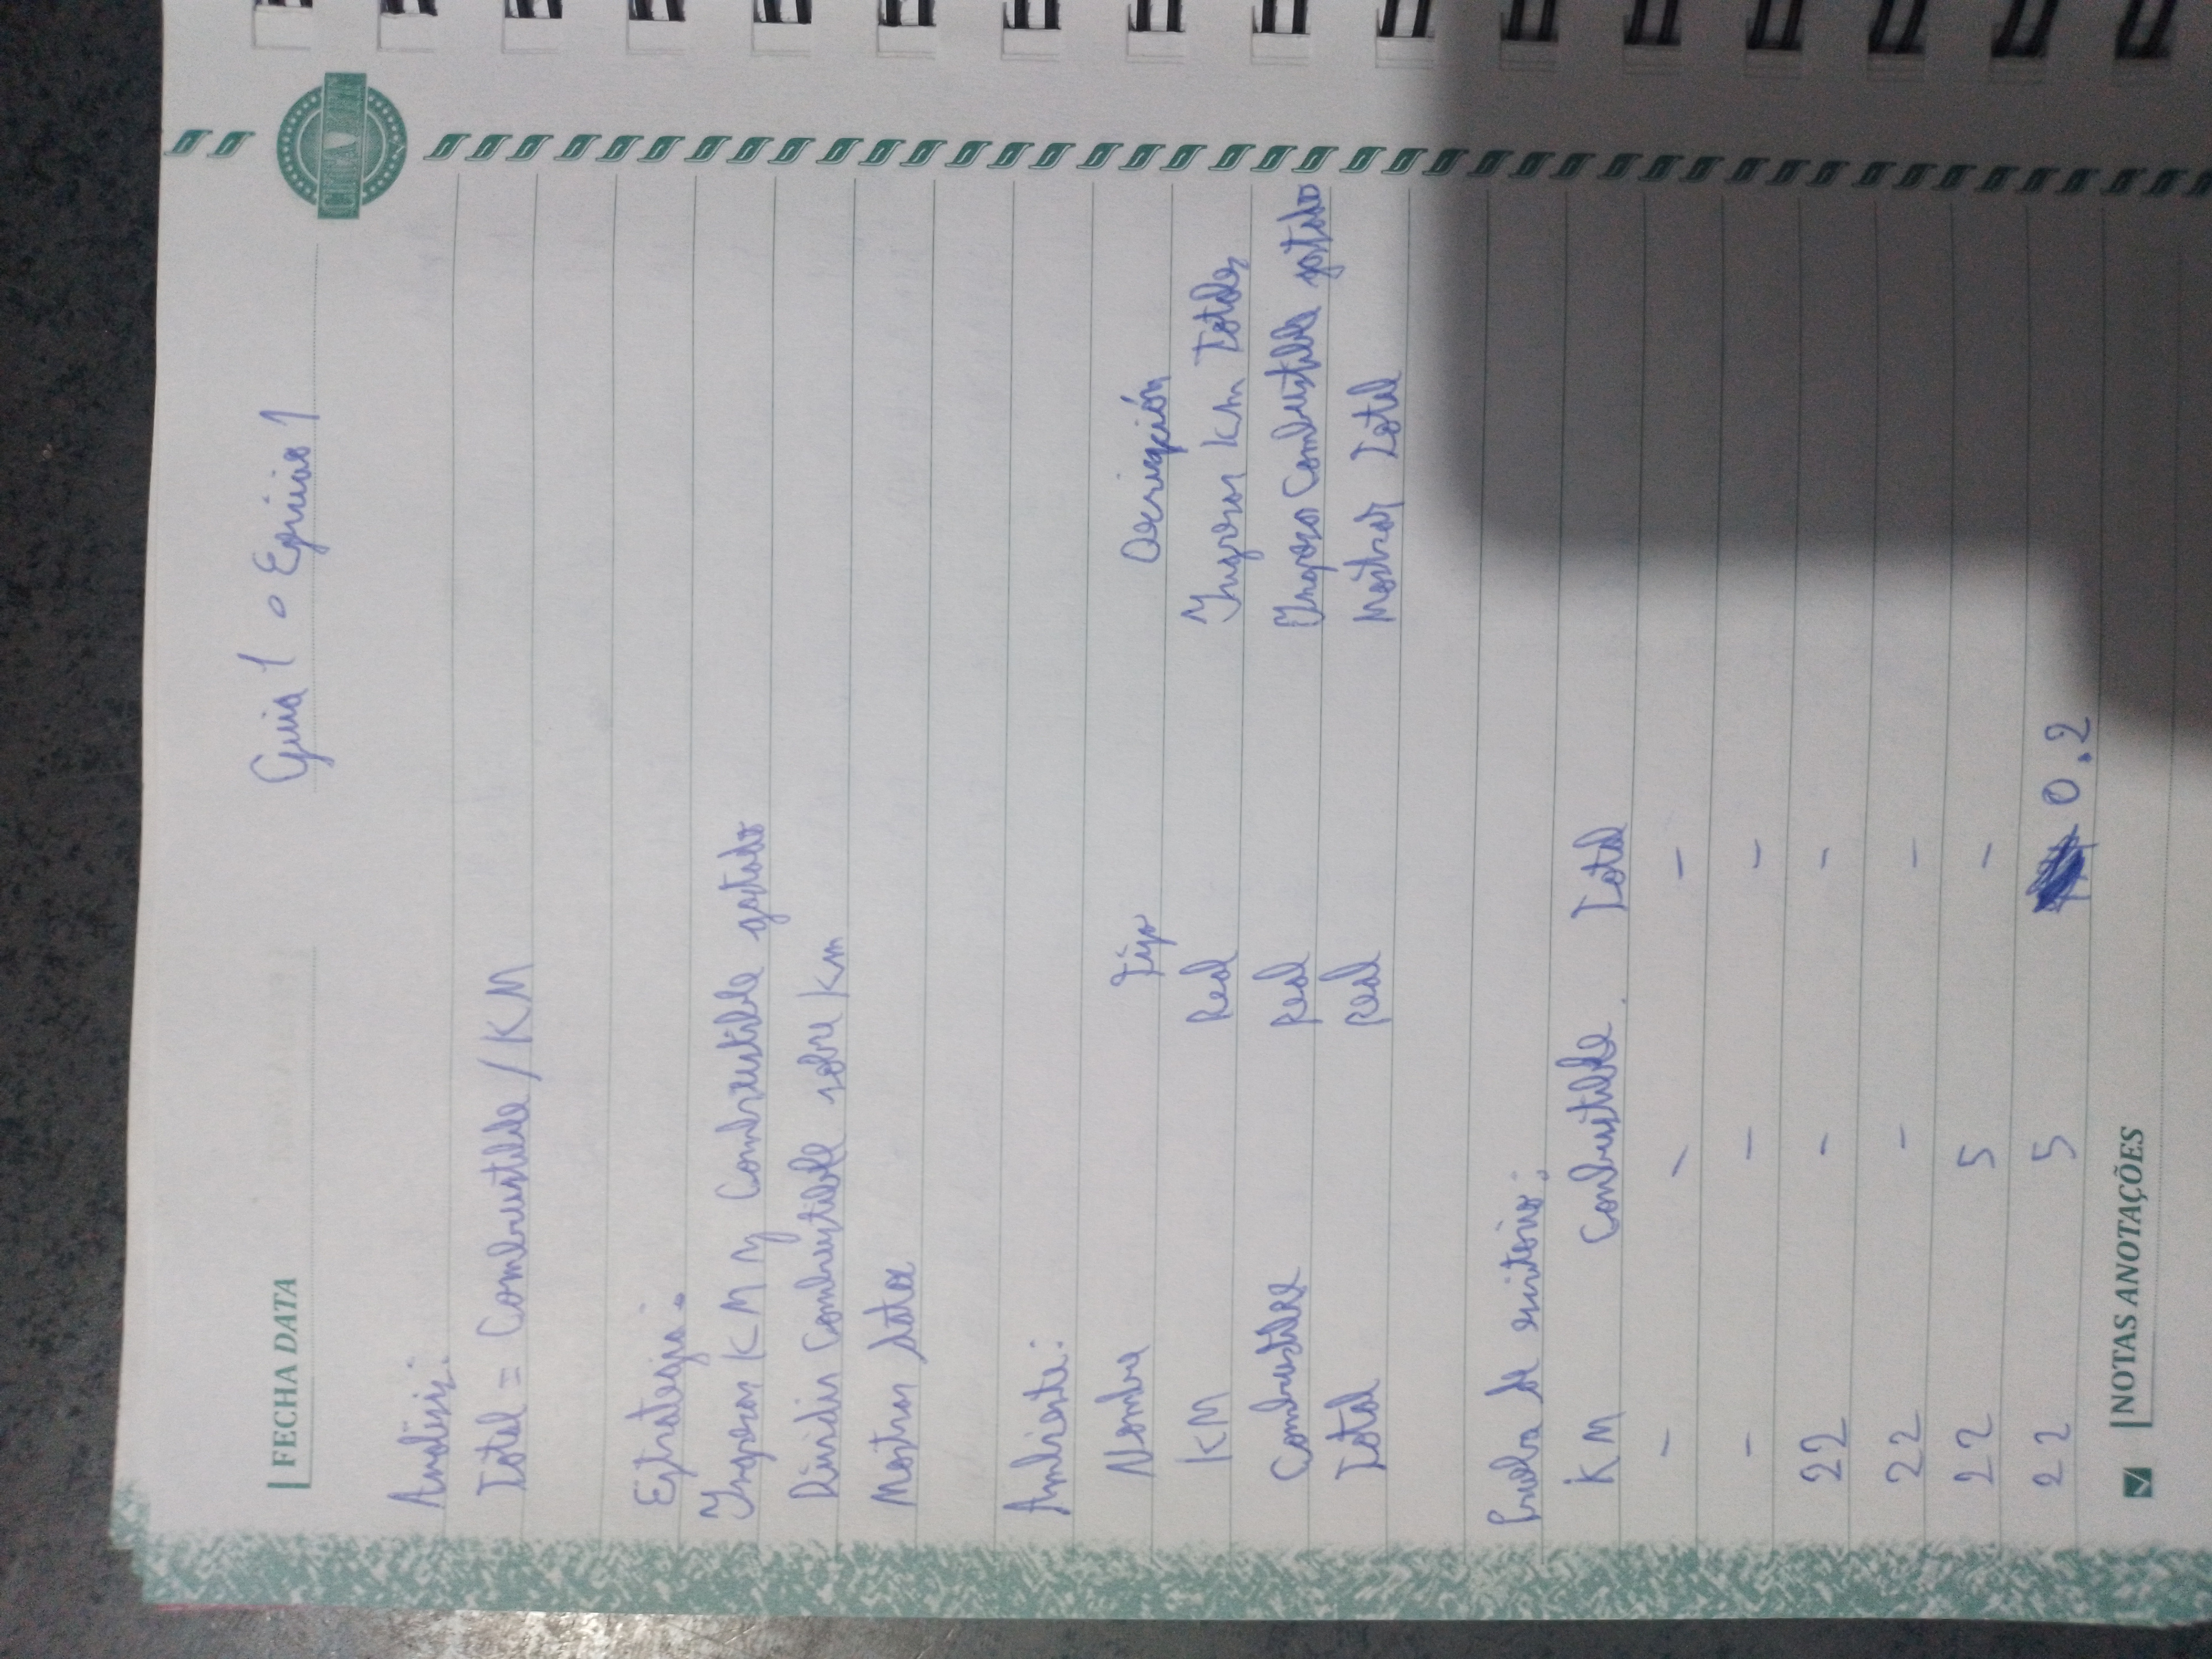 FECHA DATA
Guia 1 o Ejercicio 1
Analisis:
Total = Combustible / KM
Estrategia:
Ingresar KM y Combustible gastado
Dividir Combustible sobre Km
Mostrar datos
Ambiente:
Nombre Tipo Descripción
KM Real Ingresar Km Totales
Combustible Real Ingresar Combustible gastado
Total Real Mostrar Total
Prueba de escritorio:
KM Combustible Total
- - -
- - -
22 - -
22 - -
22 5 -
22 5 0.2
NOTAS ANOTAÇÕES